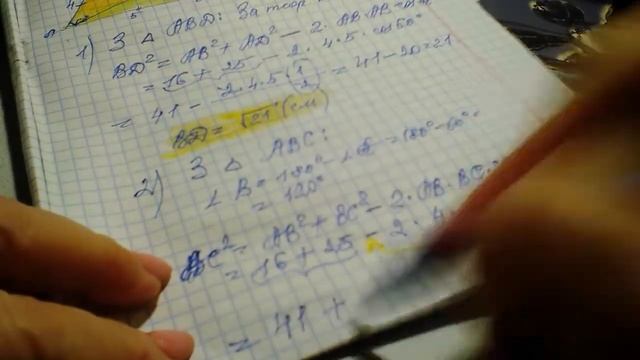 4
5
1) З △ ABD: За теор
BD² = AB² + AD² − 2 · AB · AB
= 16 + 25 − 2 · 4 · 5 · cos 60°
= 41 − 2 · 4 · 5 · 1/2 = 41 − 20 = 21
BD = √21 (см)
2) З △ ABC:
∠ B = 180° − ∠ = 180° − 60°
= 120°
AC² = AB² + BC² − 2 · AB · BC ·
= 16 + 25 − 2 · 4
= 41 +